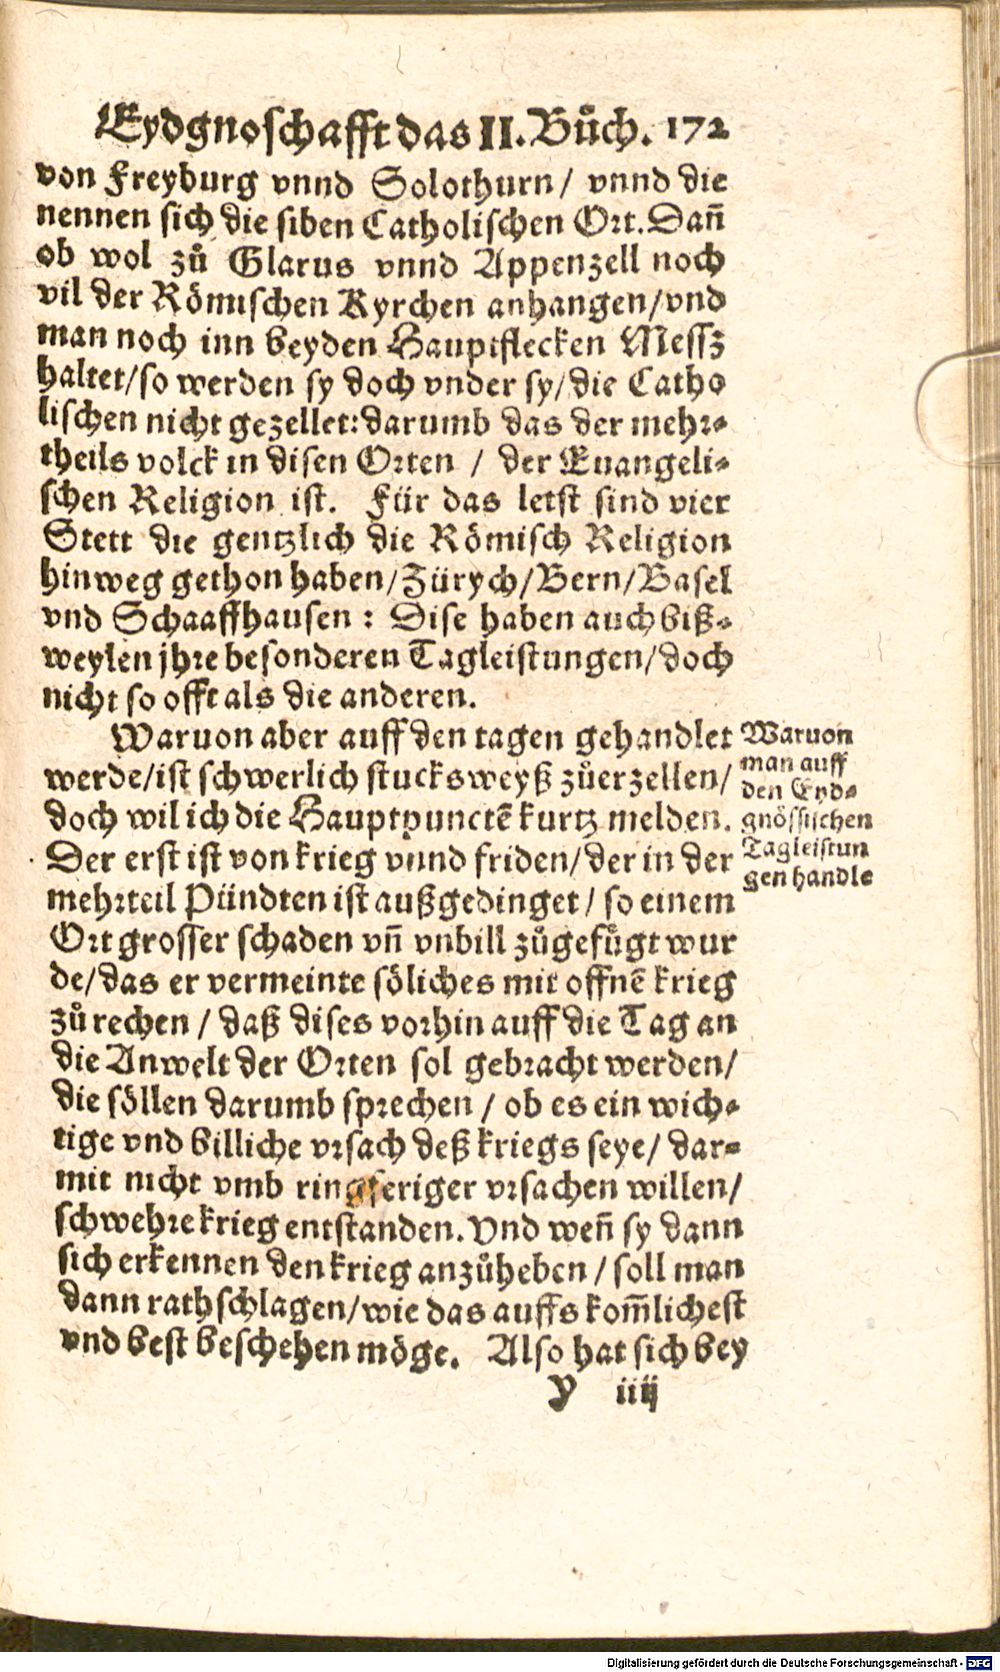 Eydgnoschafft das II. Bůch. 172
von Freyburg vnnd Solothurn / vnnd die
nennen sich die siben Catholischen Ort. Dañ
ob wol zů Glarus vnnd Appenzell noch
vil der Römischen Kyrchen anhangen/vnd
man noch inn beyden Hauptflecken Messz
haltet/so werden sy doch vnder sy/die Catho
lischen nicht gezellet: darumb das der mehr-
theils volck in disen Orten / der Euangeli-
schen Religion ist. Für das letst sind vier
Stett die gentzlich die Römisch Religion
hinweg gethon haben/Zürych/Bern/Basel
vnd Schaaffhausen : Dise haben auch biß-
weylen jhre besonderen Tagleistungen/doch
nicht so offt als die anderen.
Waruon aber auff den tagen gehandlet
werde/ist schwerlich stucksweyß zůerzellen/
doch wil ich die Hauptpunctē kurtz melden.
Der erst ist von krieg vnnd friden/der in der
mehrteil Pündten ist außgedinget / so einem
Ort grosser schaden vñ vnbill zůgefůgt wur
de/das er vermeinte söliches mit offnē krieg
zů rechen / daß dises vorhin auff die Tag an
die Anwelt der Orten sol gebracht werden/
die söllen darumb sprechen / ob es ein wich-
tige vnd billiche vrsach deß kriegs seye/ dar-
mit nicht vmb ringferiger vrsachen willen/
schwehre krieg entstanden. Vnd weñ sy dann
sich erkennen den krieg anzůheben / soll man
dann rathschlagen/wie das auffs kom̃lichest
vnd best beschehen möge. Also hat sich bey
Y iiij
Waruon
man auff
den Eyd-
gnössischen
Tagleistun
gen handle
Digitalisierung gefördert durch die Deutsche Forschungsgemeinschaft - DFG